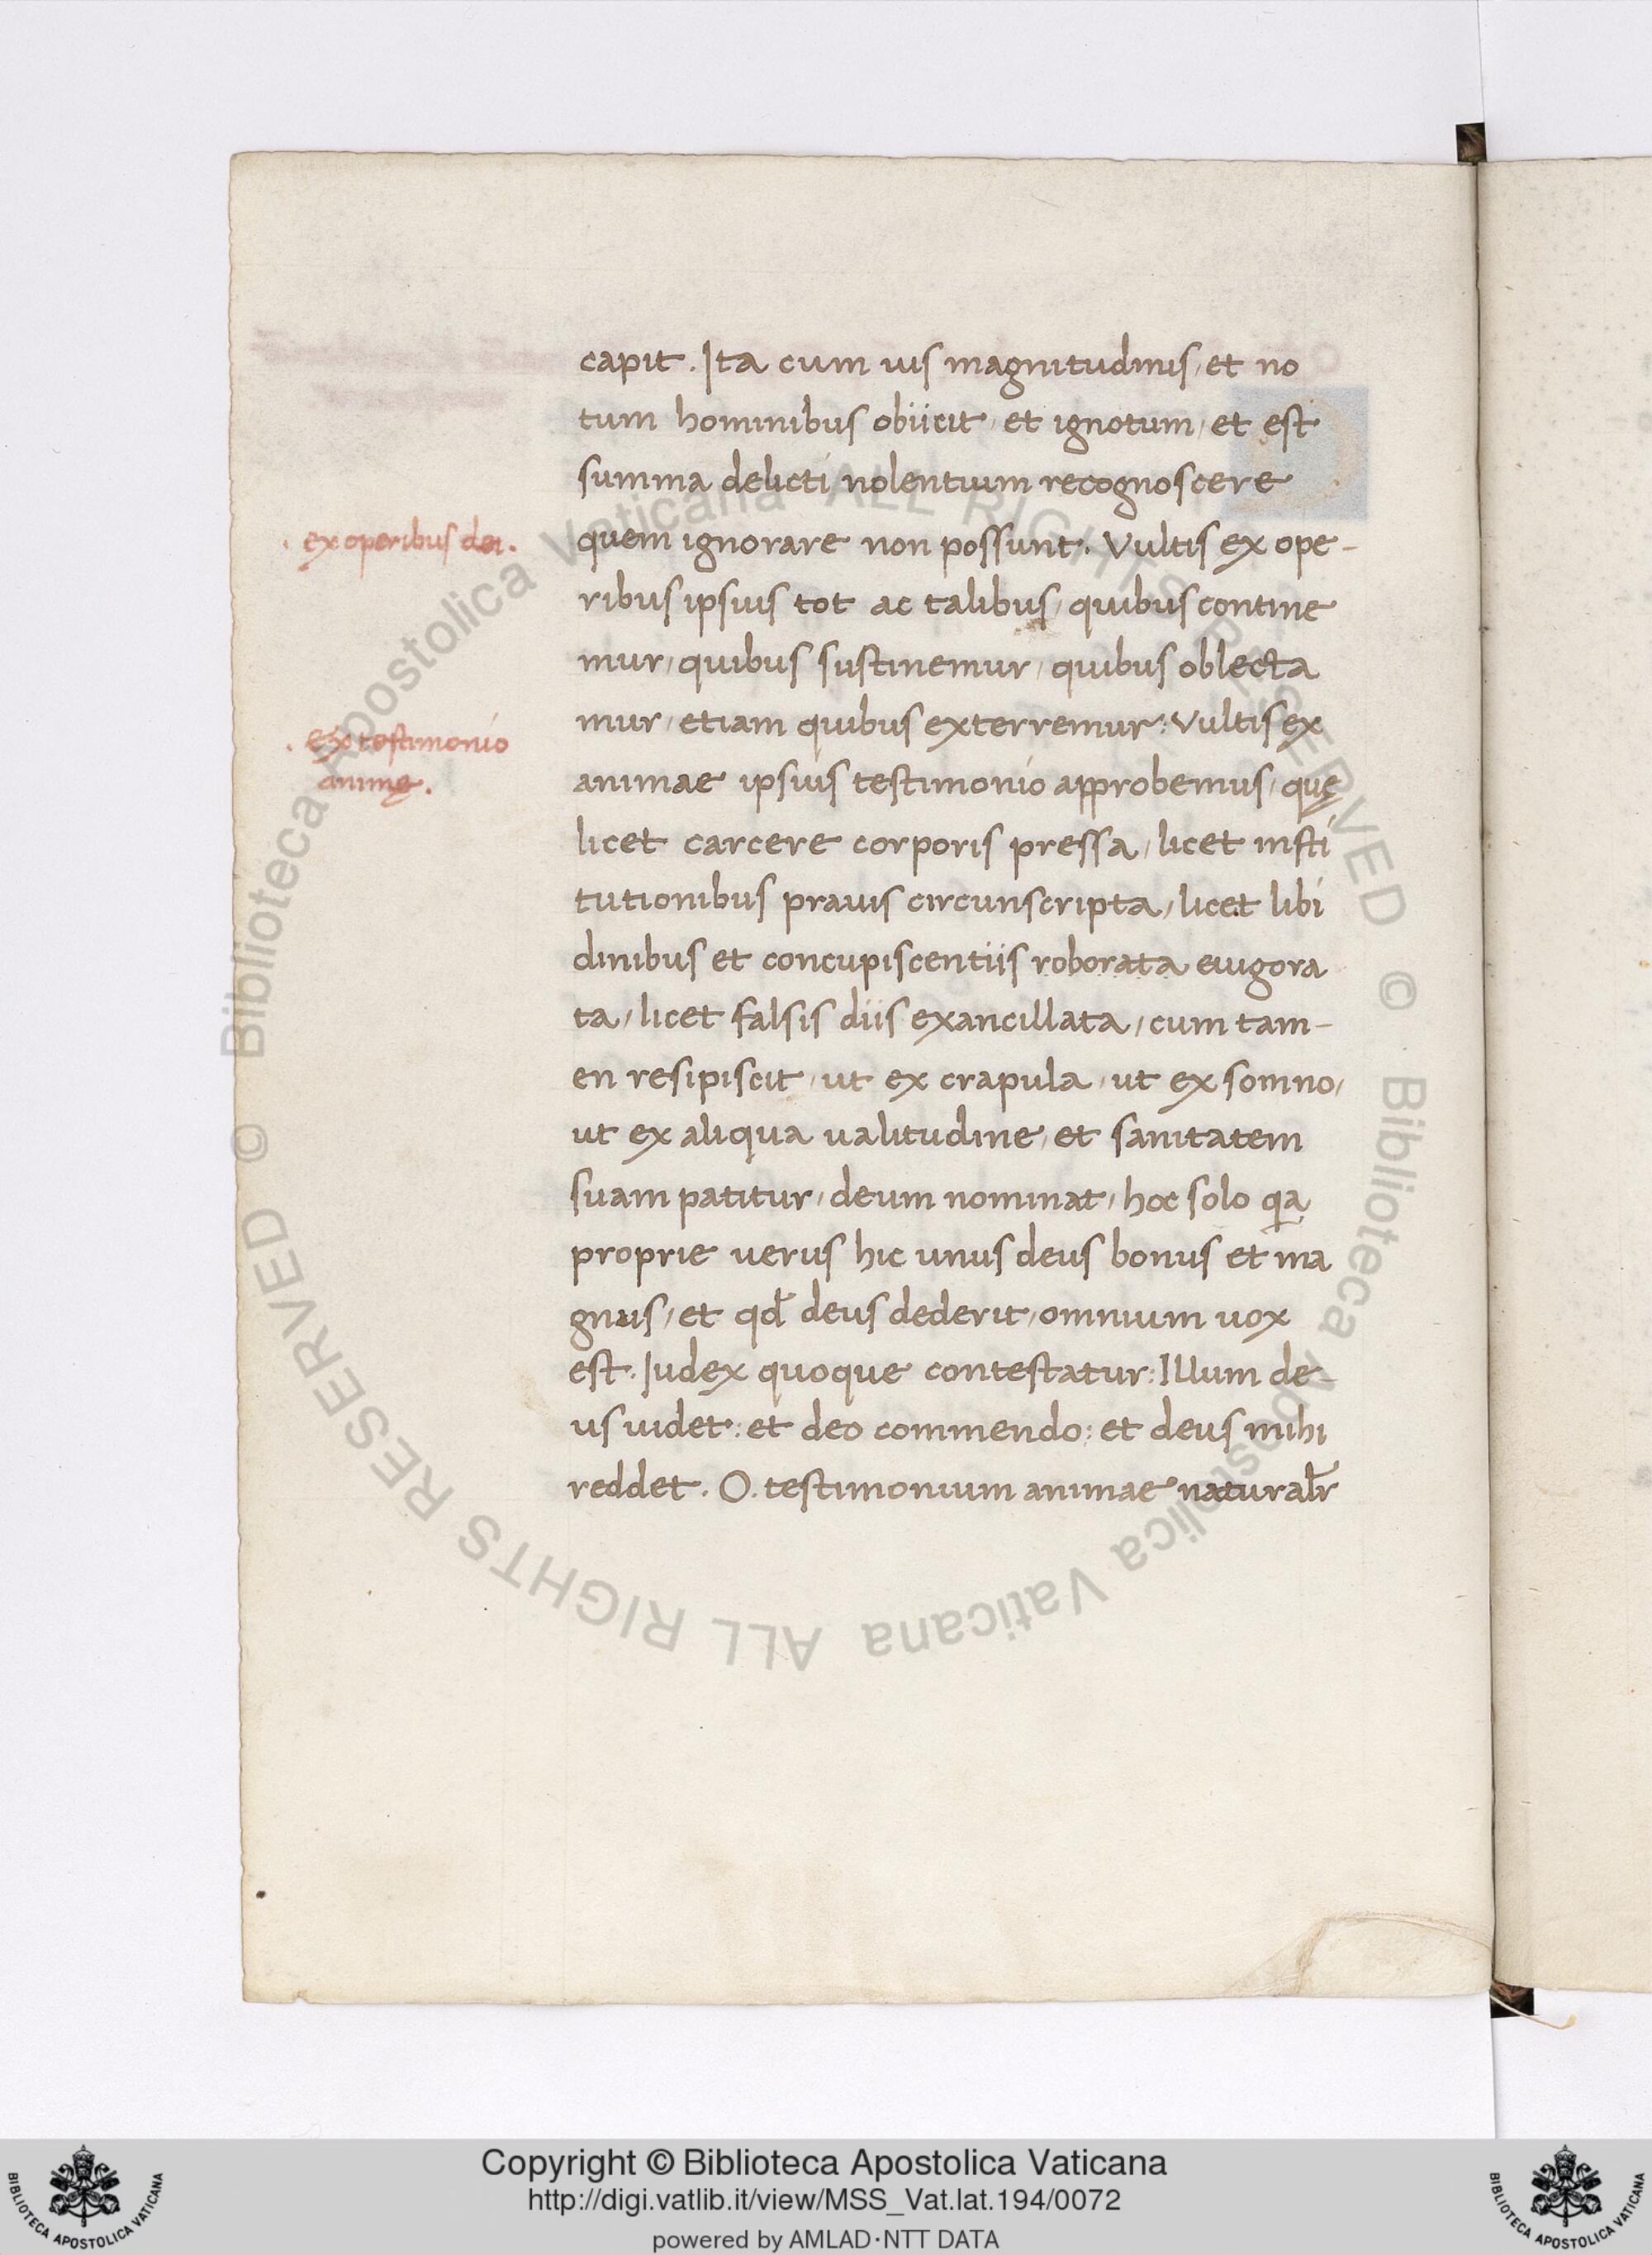 capit. Ita cum uis magnitudinis, et no
tum hominibus obiicit, et ignotum, et est
summa delicti nolentium recognoscere
· ex operibus dei.
quem ignorare non possunt. Vultis ex ope-
ribus ipsius tot ac talibus, quibus contine
mur, quibus sustinemur, quibus oblecta
mur, etiam quibus exterremur: Vultis ex
· ex testimonio
animę.
animae ipsius testimonio approbemus, quę
licet carcere corporis pressa, licet insti
tutionibus prauis circunscripta, licet libi
dinibus et concupiscentiis roborata euigora
ta, licet falsis diis exancillata, cum tam-
en resipiscit, ut ex crapula, ut ex somno,
ut ex aliqua ualitudine, et sanitatem
suam patitur, deum nominat, hoc solo qa
proprie uerus hic unus deus bonus et ma
gnus, et qd̄ deus dederit, omnium uox
est. Iudex quoque contestatur: Illum de-
us uidet: et deo commendo: et deus mihi
reddet. O. testimonium animae naturalr̄
© Biblioteca Apostolica Vaticana ALL RIGHTS RESERVED © Biblioteca Apostolica Vaticana ALL RIGHTS RESERVED
Copyright © Biblioteca Apostolica Vaticana
http://digi.vatlib.it/view/MSS_Vat.lat.194/0072
powered by AMLAD·NTT DATA
BIBLIOTECA APOSTOLICA VATICANA
BIBLIOTECA APOSTOLICA VATICANA